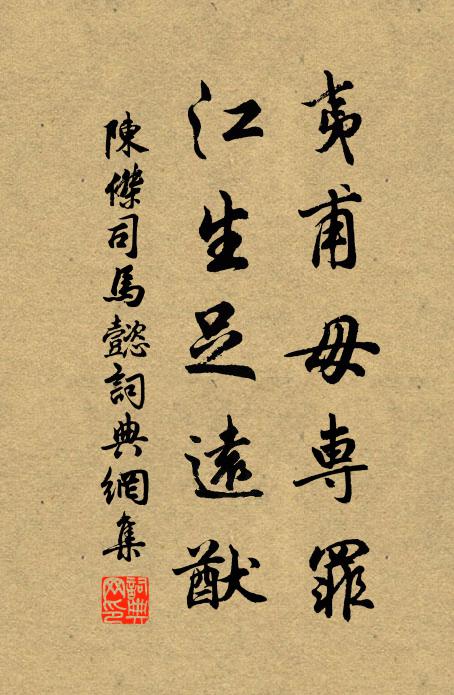 夷甫毋專罪
江生足遠猷
陳傑司馬懿詞典網集
詞典網印